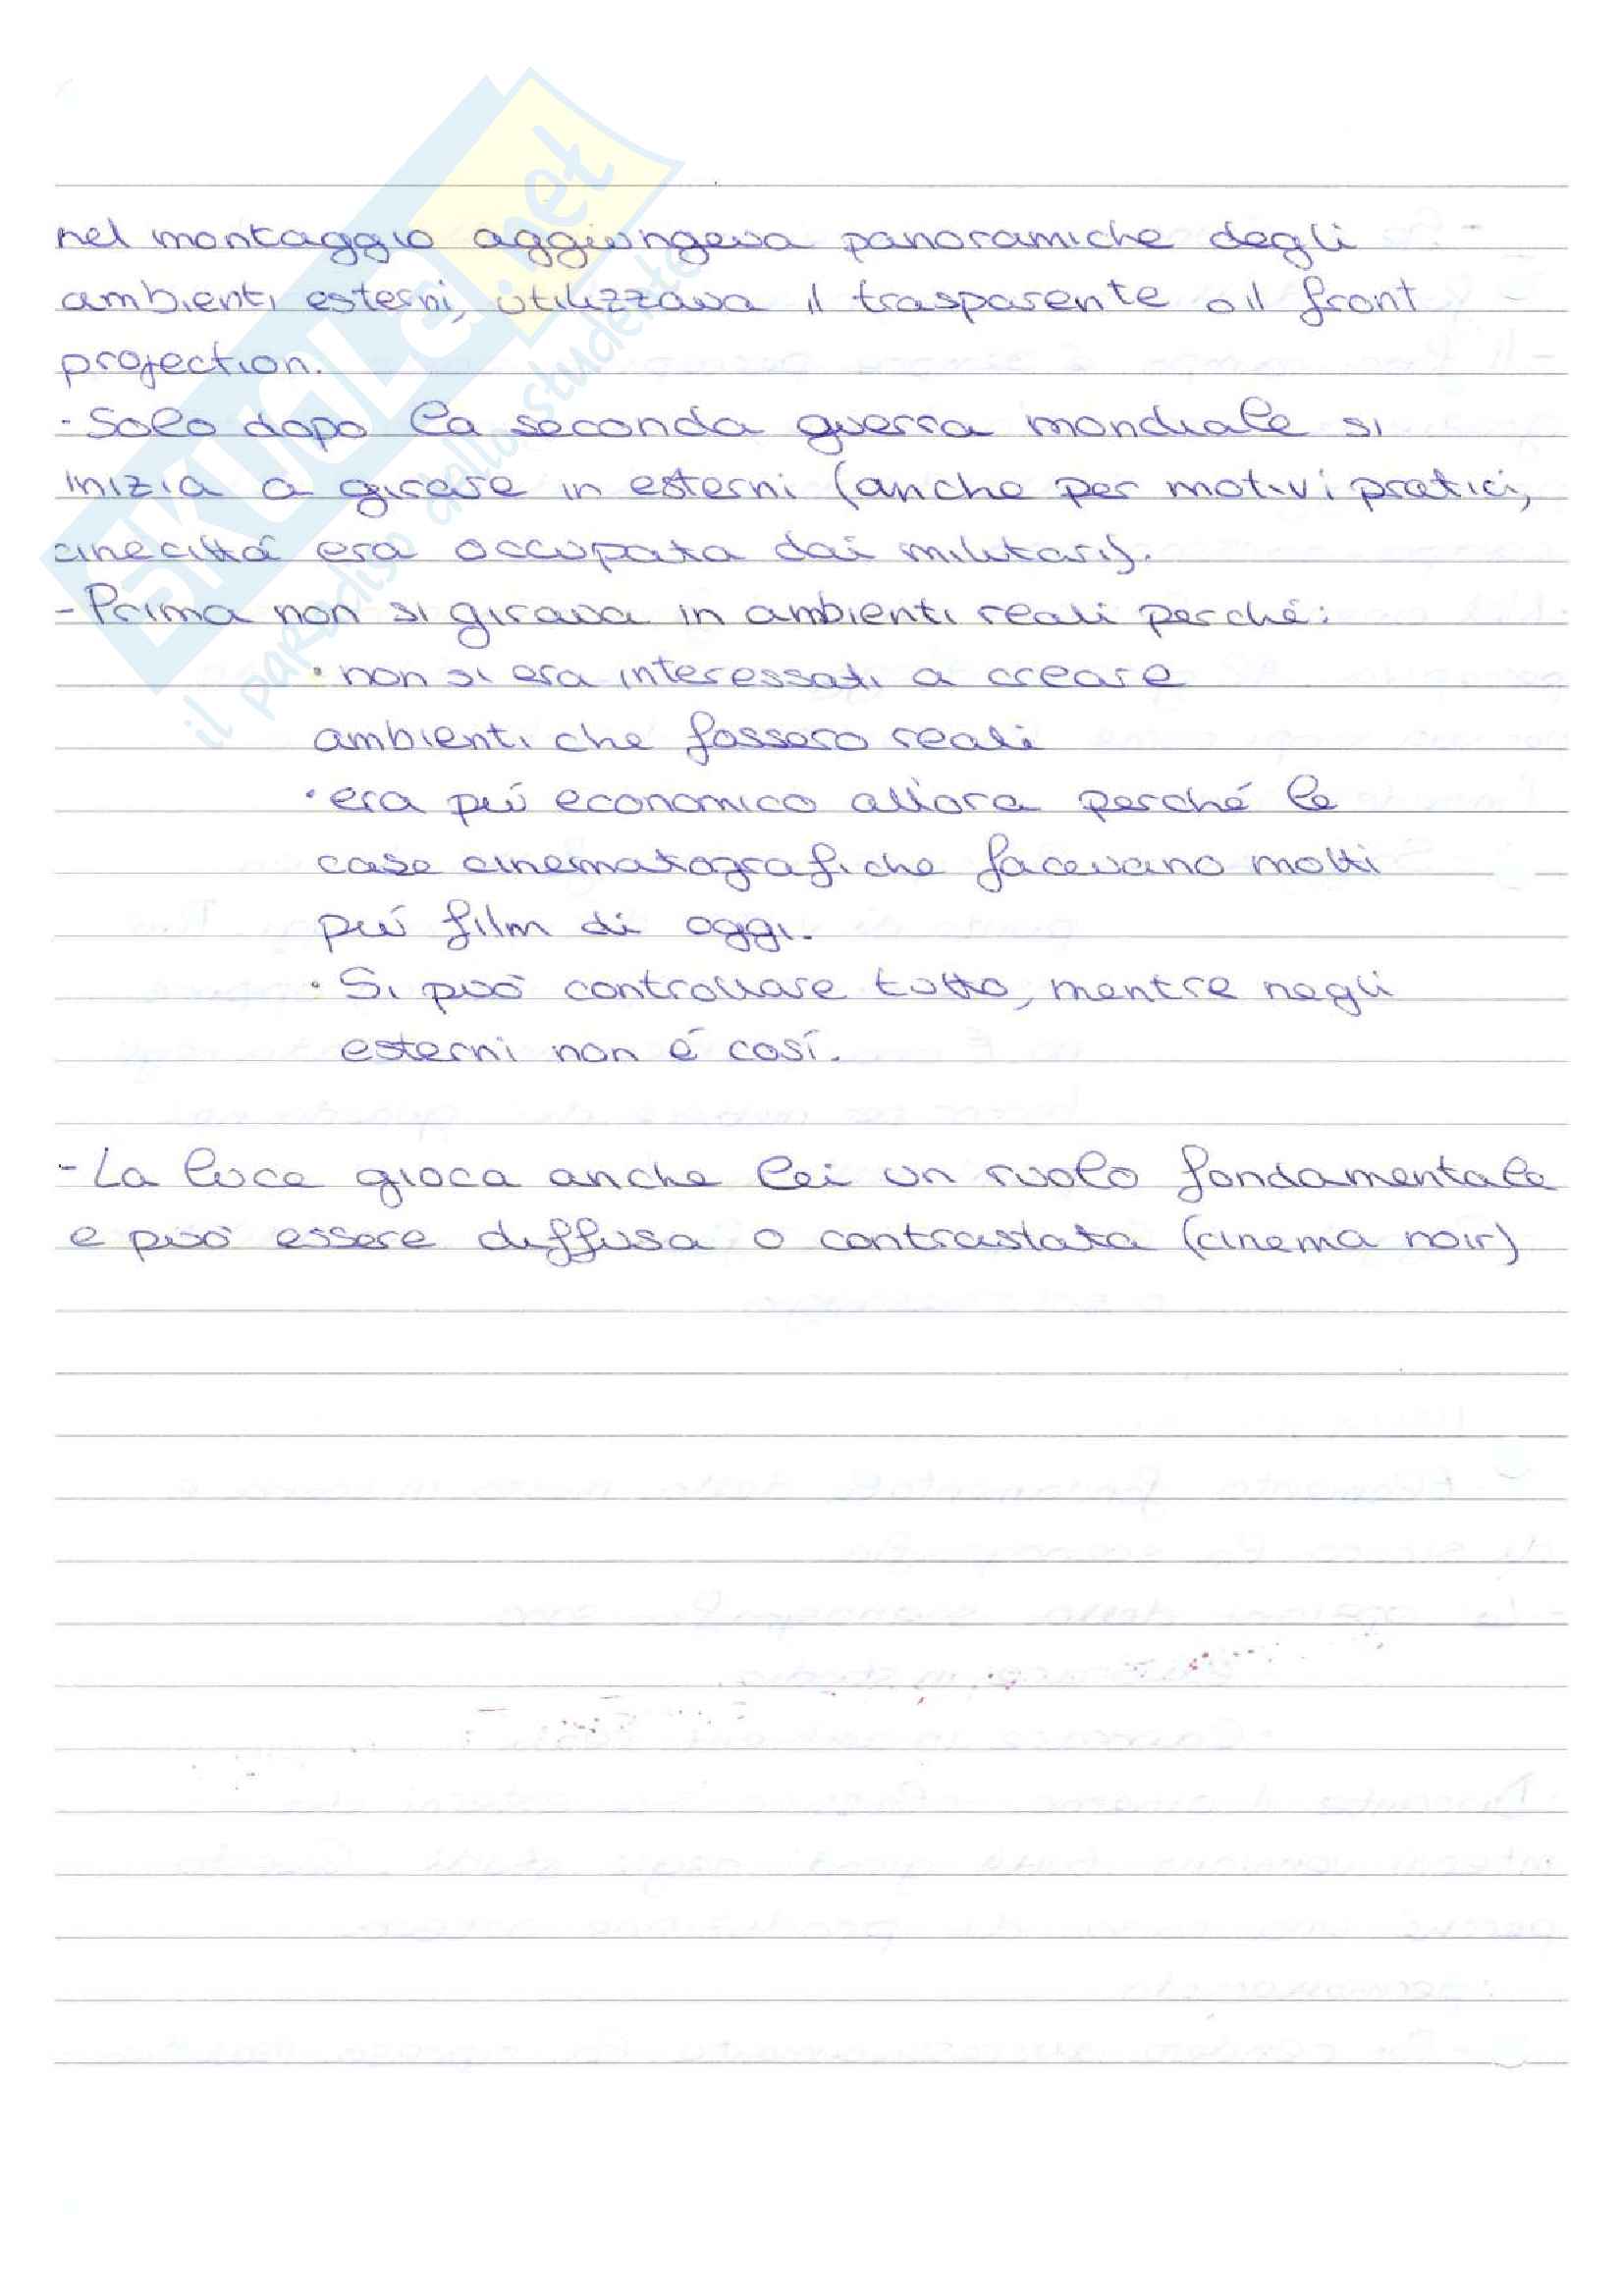 nel montaggio aggiungeva panoramiche degli
ambienti esterni, utilizzava il trasparente o il front
projection.
- Solo dopo la seconda guerra mondiale si
inizia a girare in esterni (anche per motivi pratici,
cinecittá era occupata dai militari).
- Prima non si girava in ambienti reali perché:
· non si era interessati a creare
ambienti che fossero reali
· era piú economico allora perché le
case cinematografiche facevano molti
piú film di oggi.
· Si può controllare tutto, mentre negli
esterni non é cosí.
- La luce gioca anche lei un ruolo fondamentale
e può essere diffusa o contrastata (cinema noir)
SKUOLA.net
il paradiso dello studente